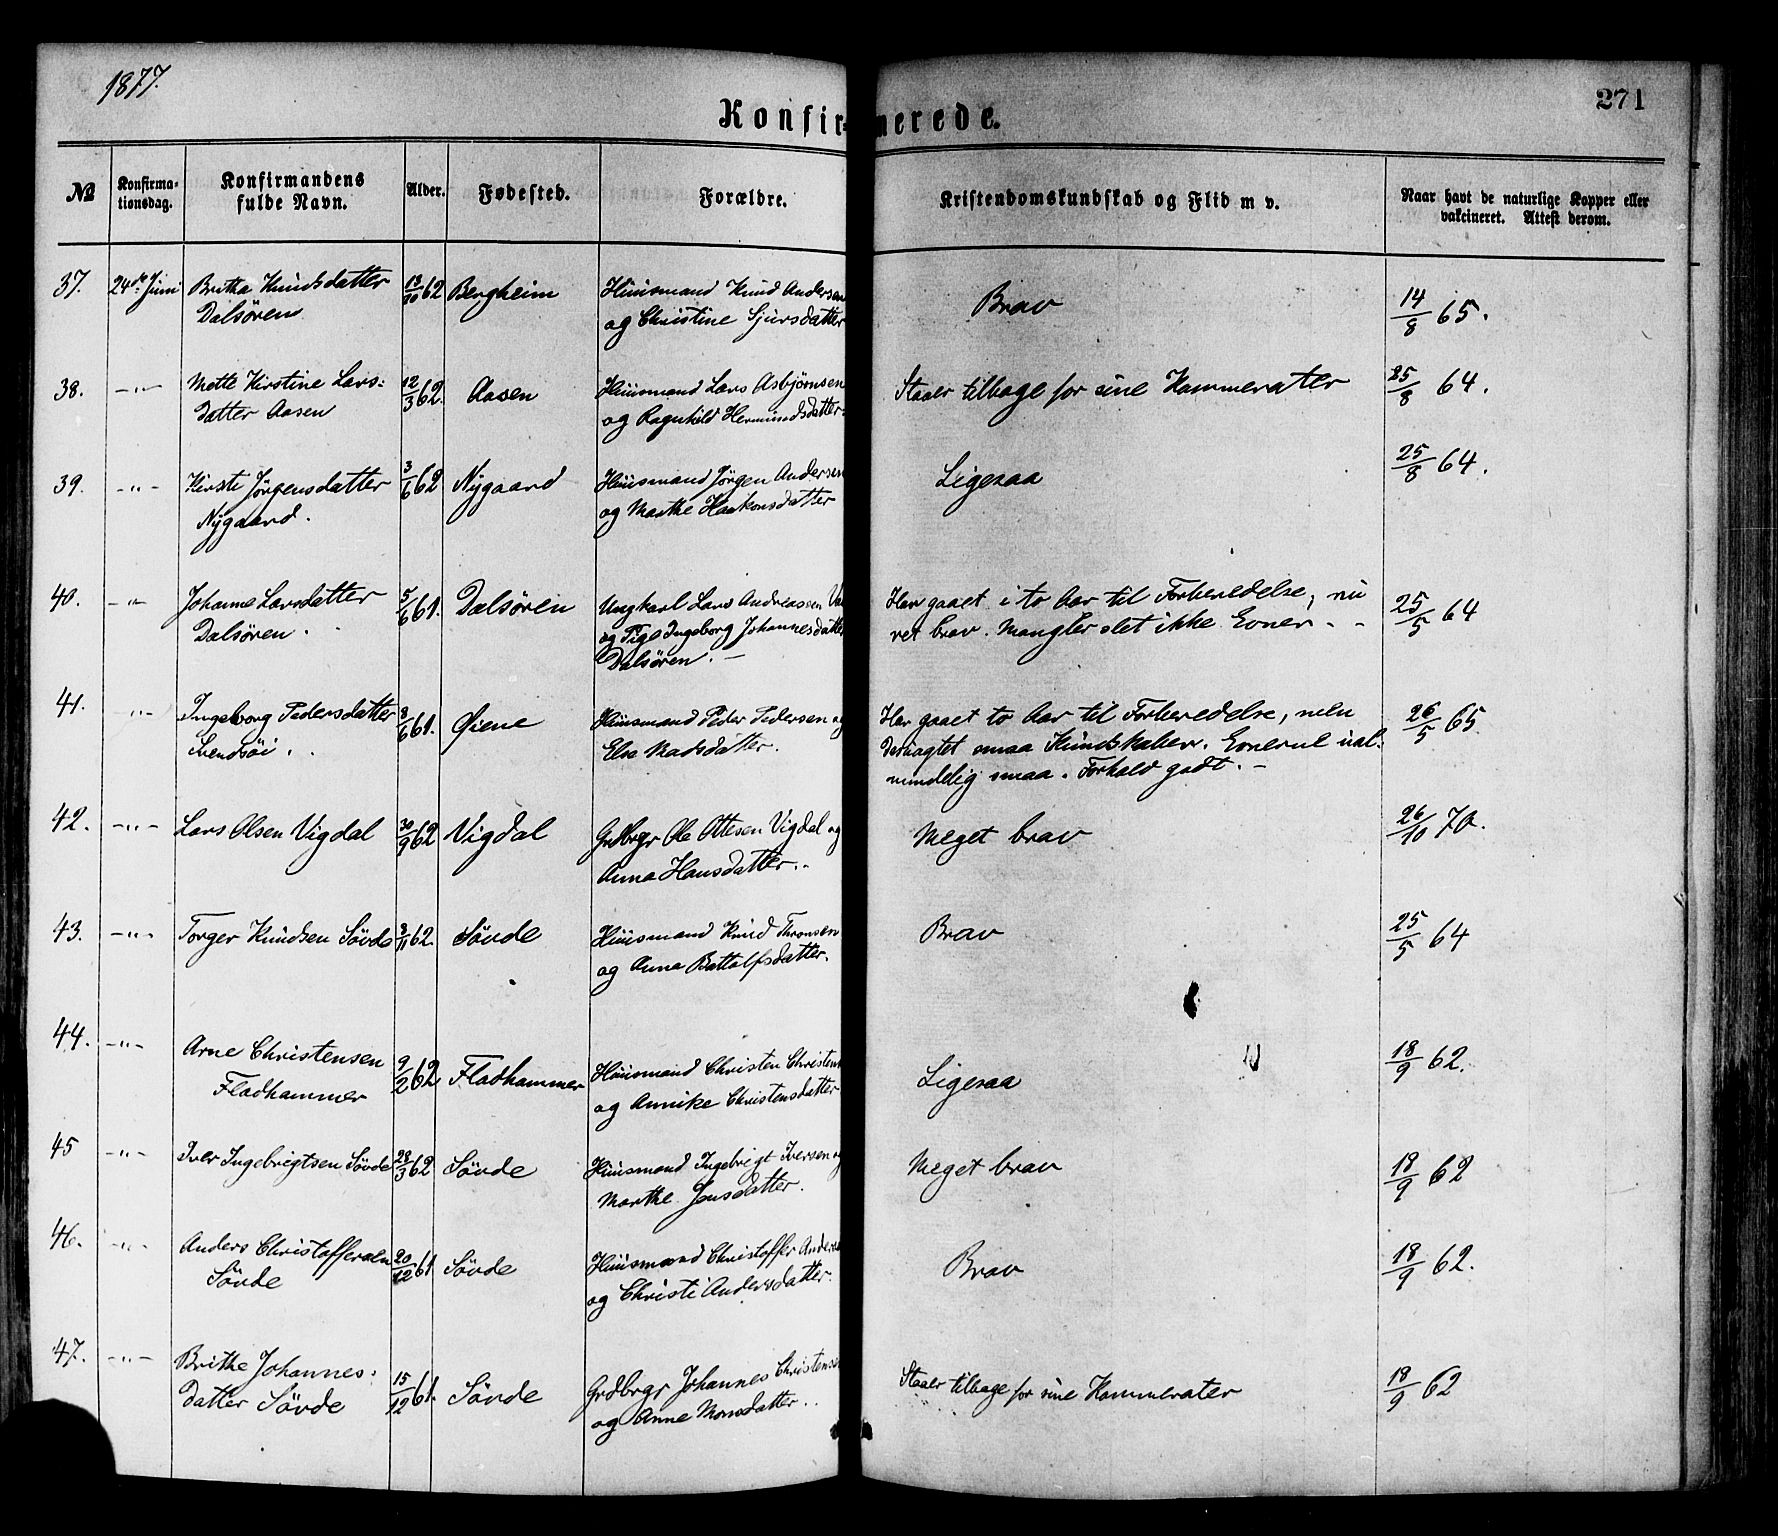 1877.
271
Konfirmerede.
No
Konfirma-
tionsdag.
Konfirmandens
fulde Navn.
Alder.
Fødested.
Forældre.
Kristendomskundskab og Flid m v.
Naar havt de naturlige Kopper eller
vakcineret. Attest derom.
37. 24de Juni Britha Knudsdatter 13/10 62 Bergheim Huusmand Knud Andersen Brav 14/8 65.
Dalsören og Christine Sjursdatter
38. -"- Mette Kirstine Lars- 12/3 62. Aasen Huusmand Lars Asbjörnsen Staaer tilbage for sine Kammerater 25/8 64.
datter Aasen og Ragnhild Hermundsdatter.
39. -"- Kirsti Jörgensdatter 3/6 62 Nygaard Huusmand Jörgen Andersen Ligesaa 25/8 64.
Nygaard. og Marthe Haakonsdatter
40. -"- Johanne Larsdatter 5/6 61. Dalsören Ungkarl Lars Andreassen Har gaaet i to Aar til Forberedelse, nu 25/5 64
Dalsören. og Pige Ingeborg Johannesdatter ret brav. Mangler slet ikke Evner. -
Dalsören. -
41. -"- Ingeborg Pedersdatter 8/6 61. Øiene Huusmand Peder Pedersen og Har gaaet to Aar til Forberedelse, men 26/5 65.
Svendsöi. Else Madsdatter. desuagtet smaa Kundskaber. Evnerne ual-
mindelig smaa. Forhold godt. -
42. -"- Lars Olsen Vigdal 30/9 62 Vigdal Grdbrgr Ole Ottesen Vigdal og Meget brav 26/10 70.
Anna Hansdatter. -
43. -"- Torger Knudsen Sövde 3/11 62. Sövde Huusmand Knud Thronsen Brav 25/5 64
og Anna Battolfsdatter.
44. -"- Arne Christensen 9/2 62 Fladhammer Huusmand Christen Christens Ligesaa 18/9 62.
Fladhammer og Annike Christensdatter
45 -"- Iver Ingebrigtsen Sövde 28/3 62 Sövde Huusmand Ingebrigt Iversen og Meget brav 18/9 62
Marthe Jensdatter.
46. -"- Anders Christoffersen 20/12 61 Sövde Huusmand Christoffer Anders Brav 18/9 62.
Sövde og Christi Andersdatter.
47. -"- Brithe Johannes- 15/12 61. Sövde Grdbrgr Johannes Christensen Staaer tilbage for sine Kammerater 18/9 62
datter Sövde og Anne Monsdatter. .